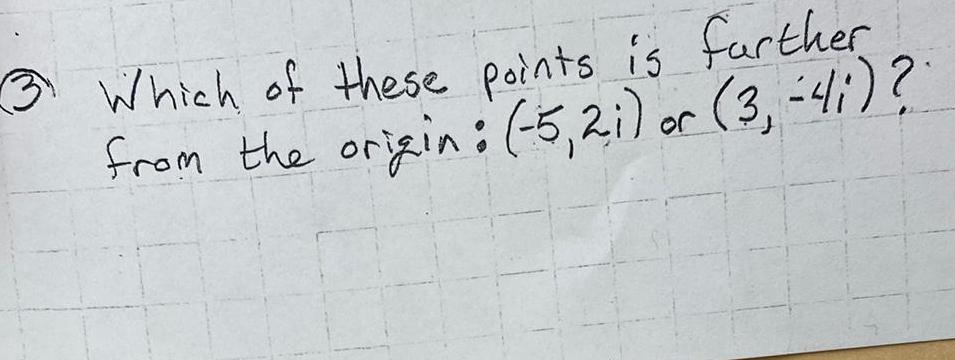 ③ Which of these points is further
from the origin: (-5, 2i) or (3, -4i)?